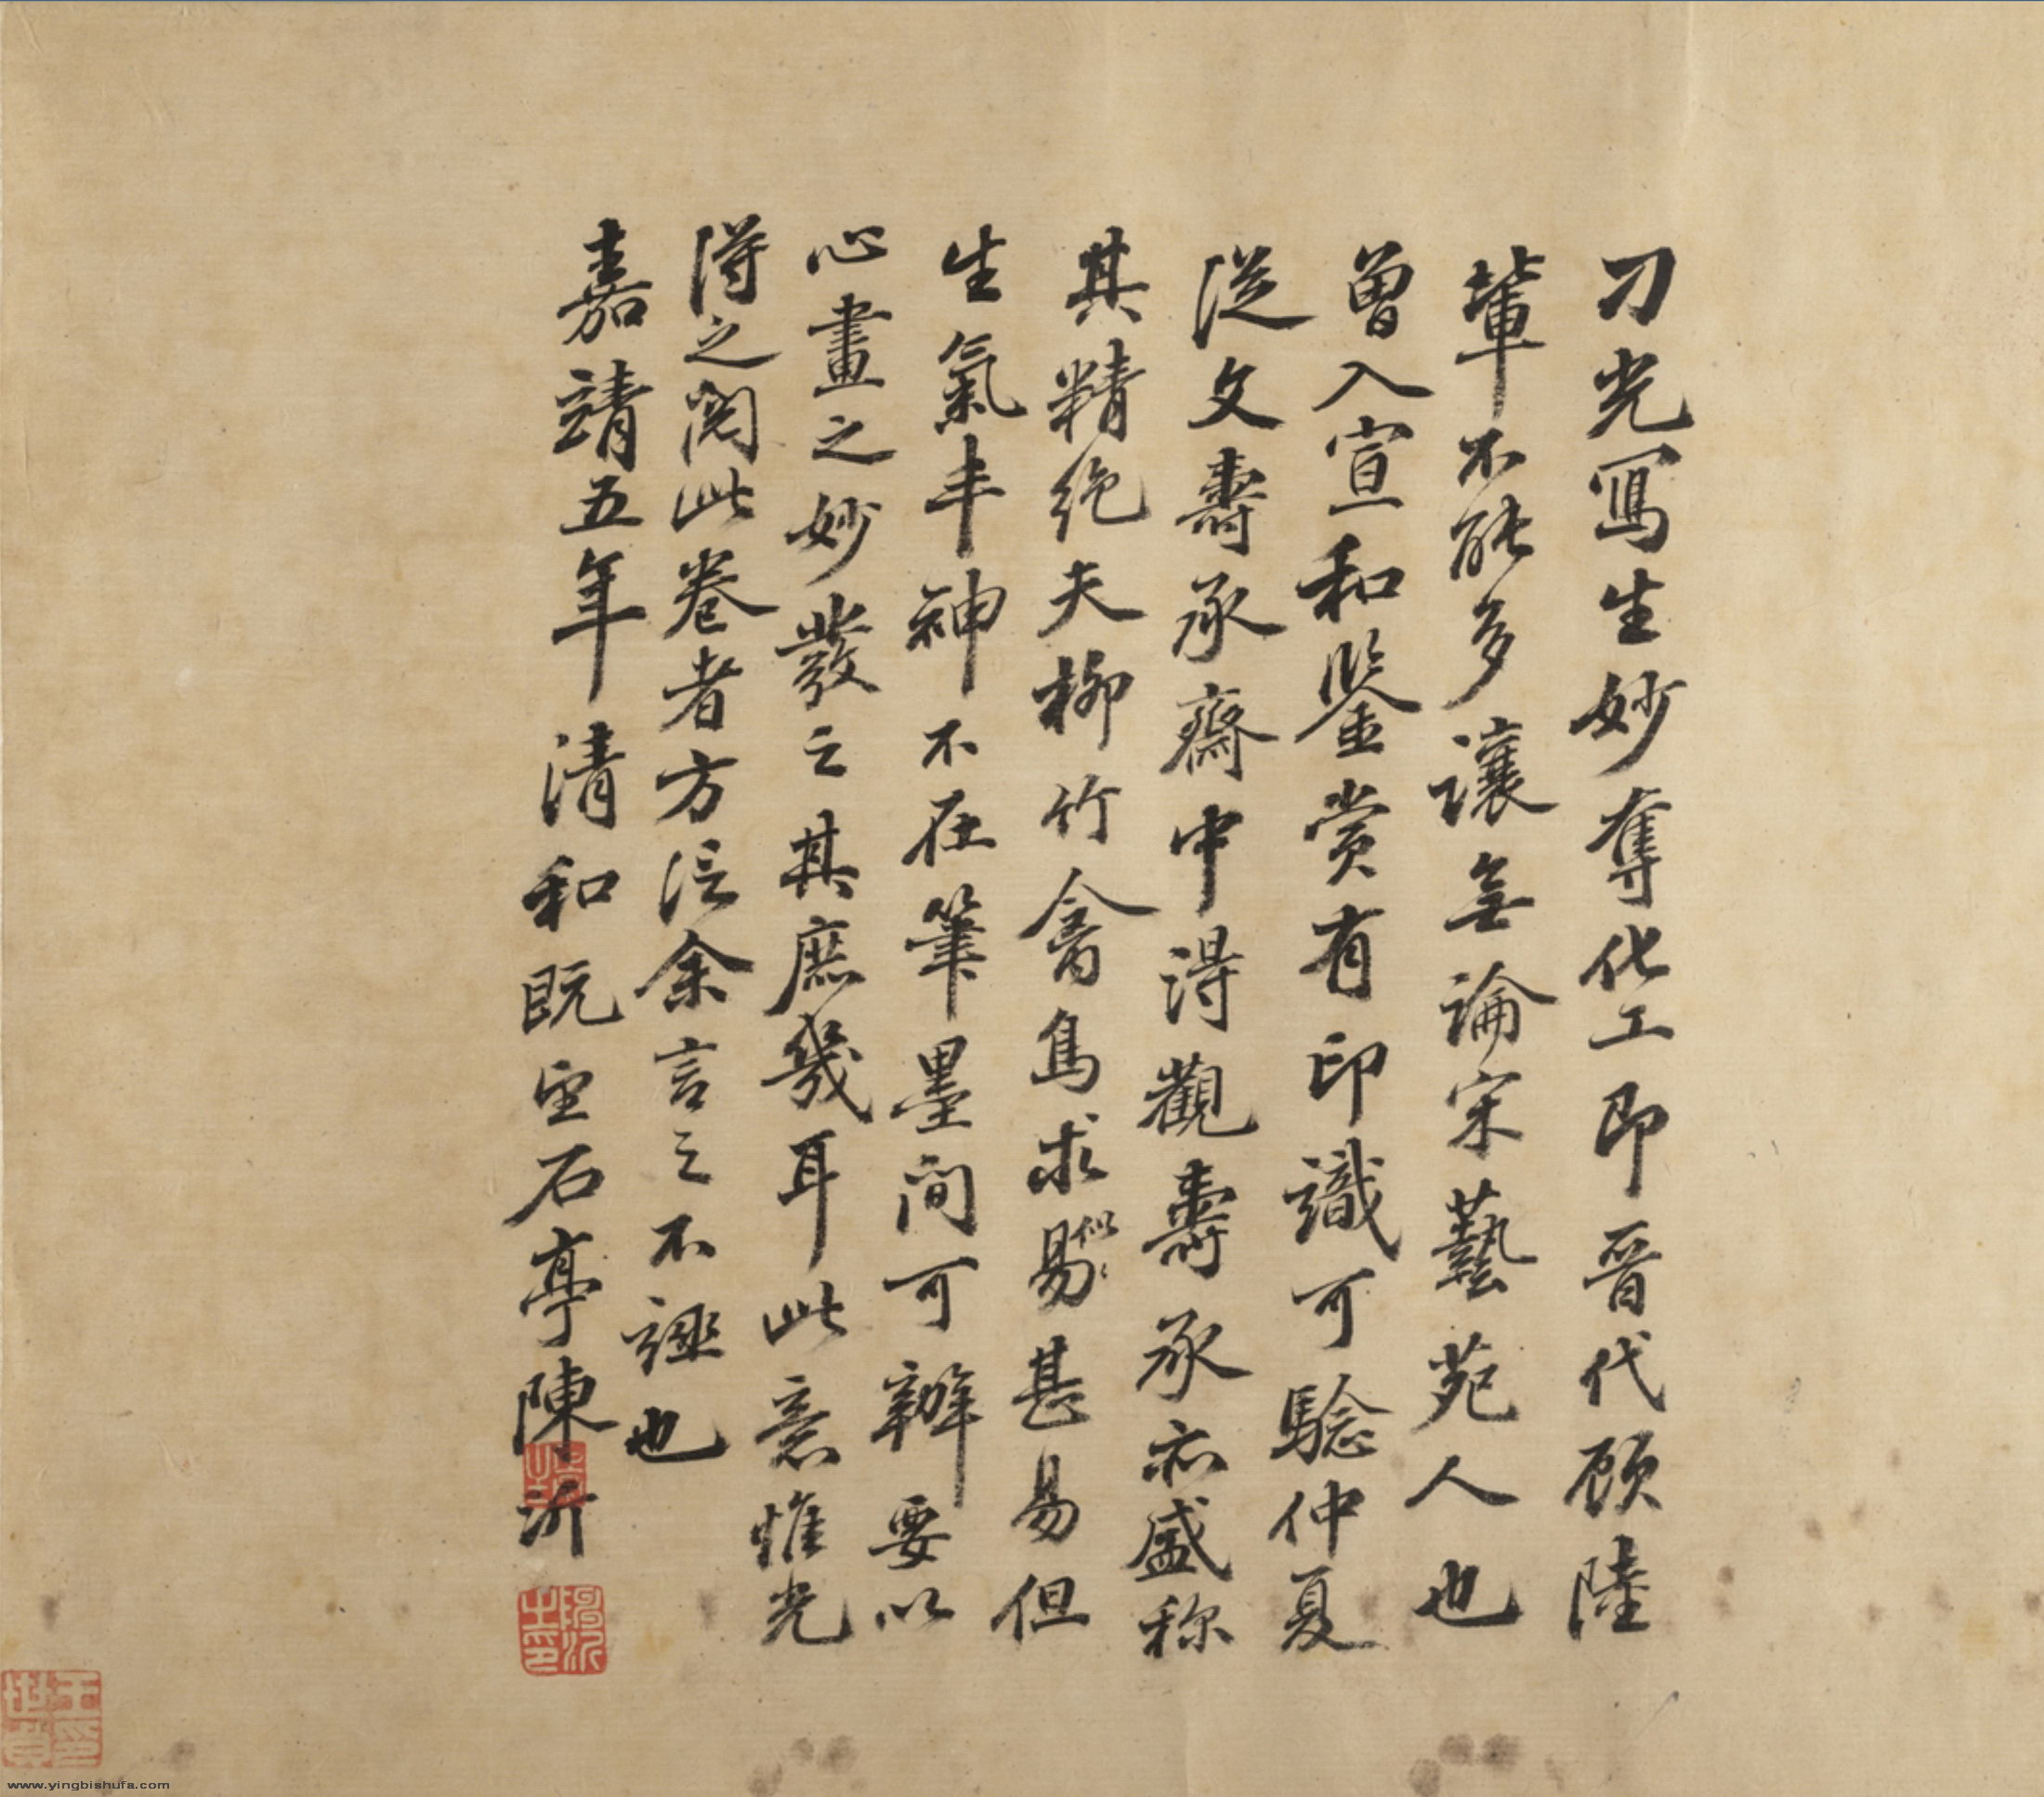 刁光寫生妙奪化工即晉代顧陸
輩不能多讓無論宋藝苑人也
曾入宣和鑒賞有印識可驗仲夏
從文壽承齋中得觀壽承亦盛稱
其精絕夫柳竹禽鳥求似易甚易但
生氣丰神不在筆墨間可辦要以
心畫之妙發之其庶幾耳此意惟光
得之閱此卷者方信余言之不誣也
嘉靖五年清和既望石亭陳沂
陳沂之印
王世貞印
www.yingbishufa.com